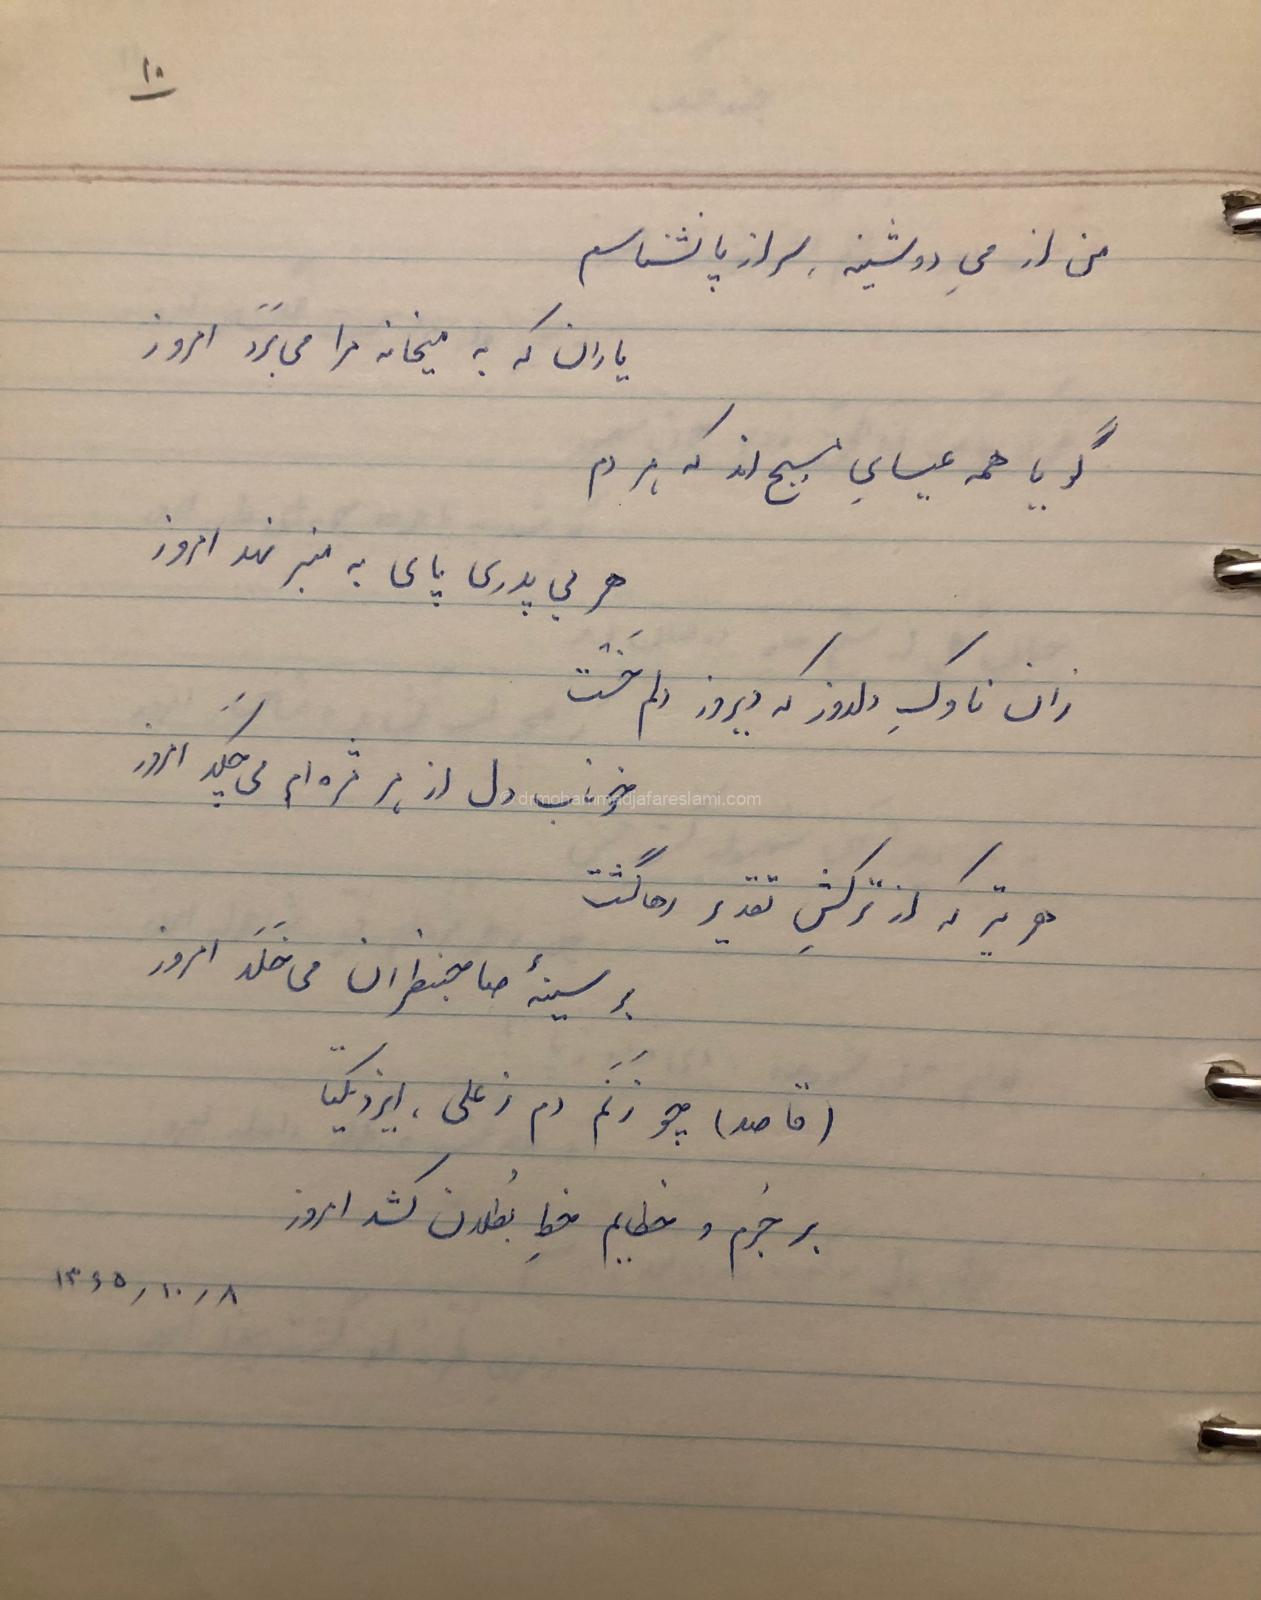 ۱۰
من از میِ دوشینه، سر از پا نشناسم
یاران که به میخانه مرا می‌بَرَد امروز
گویا همه عیسایِ مسیح‌اند که هر دم
هر بی‌پدری پای به منبر نهد امروز
زان ناوکِ دلدوز که دیروز دلم خَست
خونابِ دل از هر مژه‌ام می‌چَکَد امروز
هر تیر که از ترکشِ تقدیر رها گشت
بر سینهٔ صاحبنظران می‌خَلَد امروز
(قاصد) چو زَنَم دم ز علی، ایزد یکتا
بر جُرم و خطایم خطِ بُطلان کشد امروز
۱۳۶۵/۱۰/۸
© drmohammadjafareslami.com